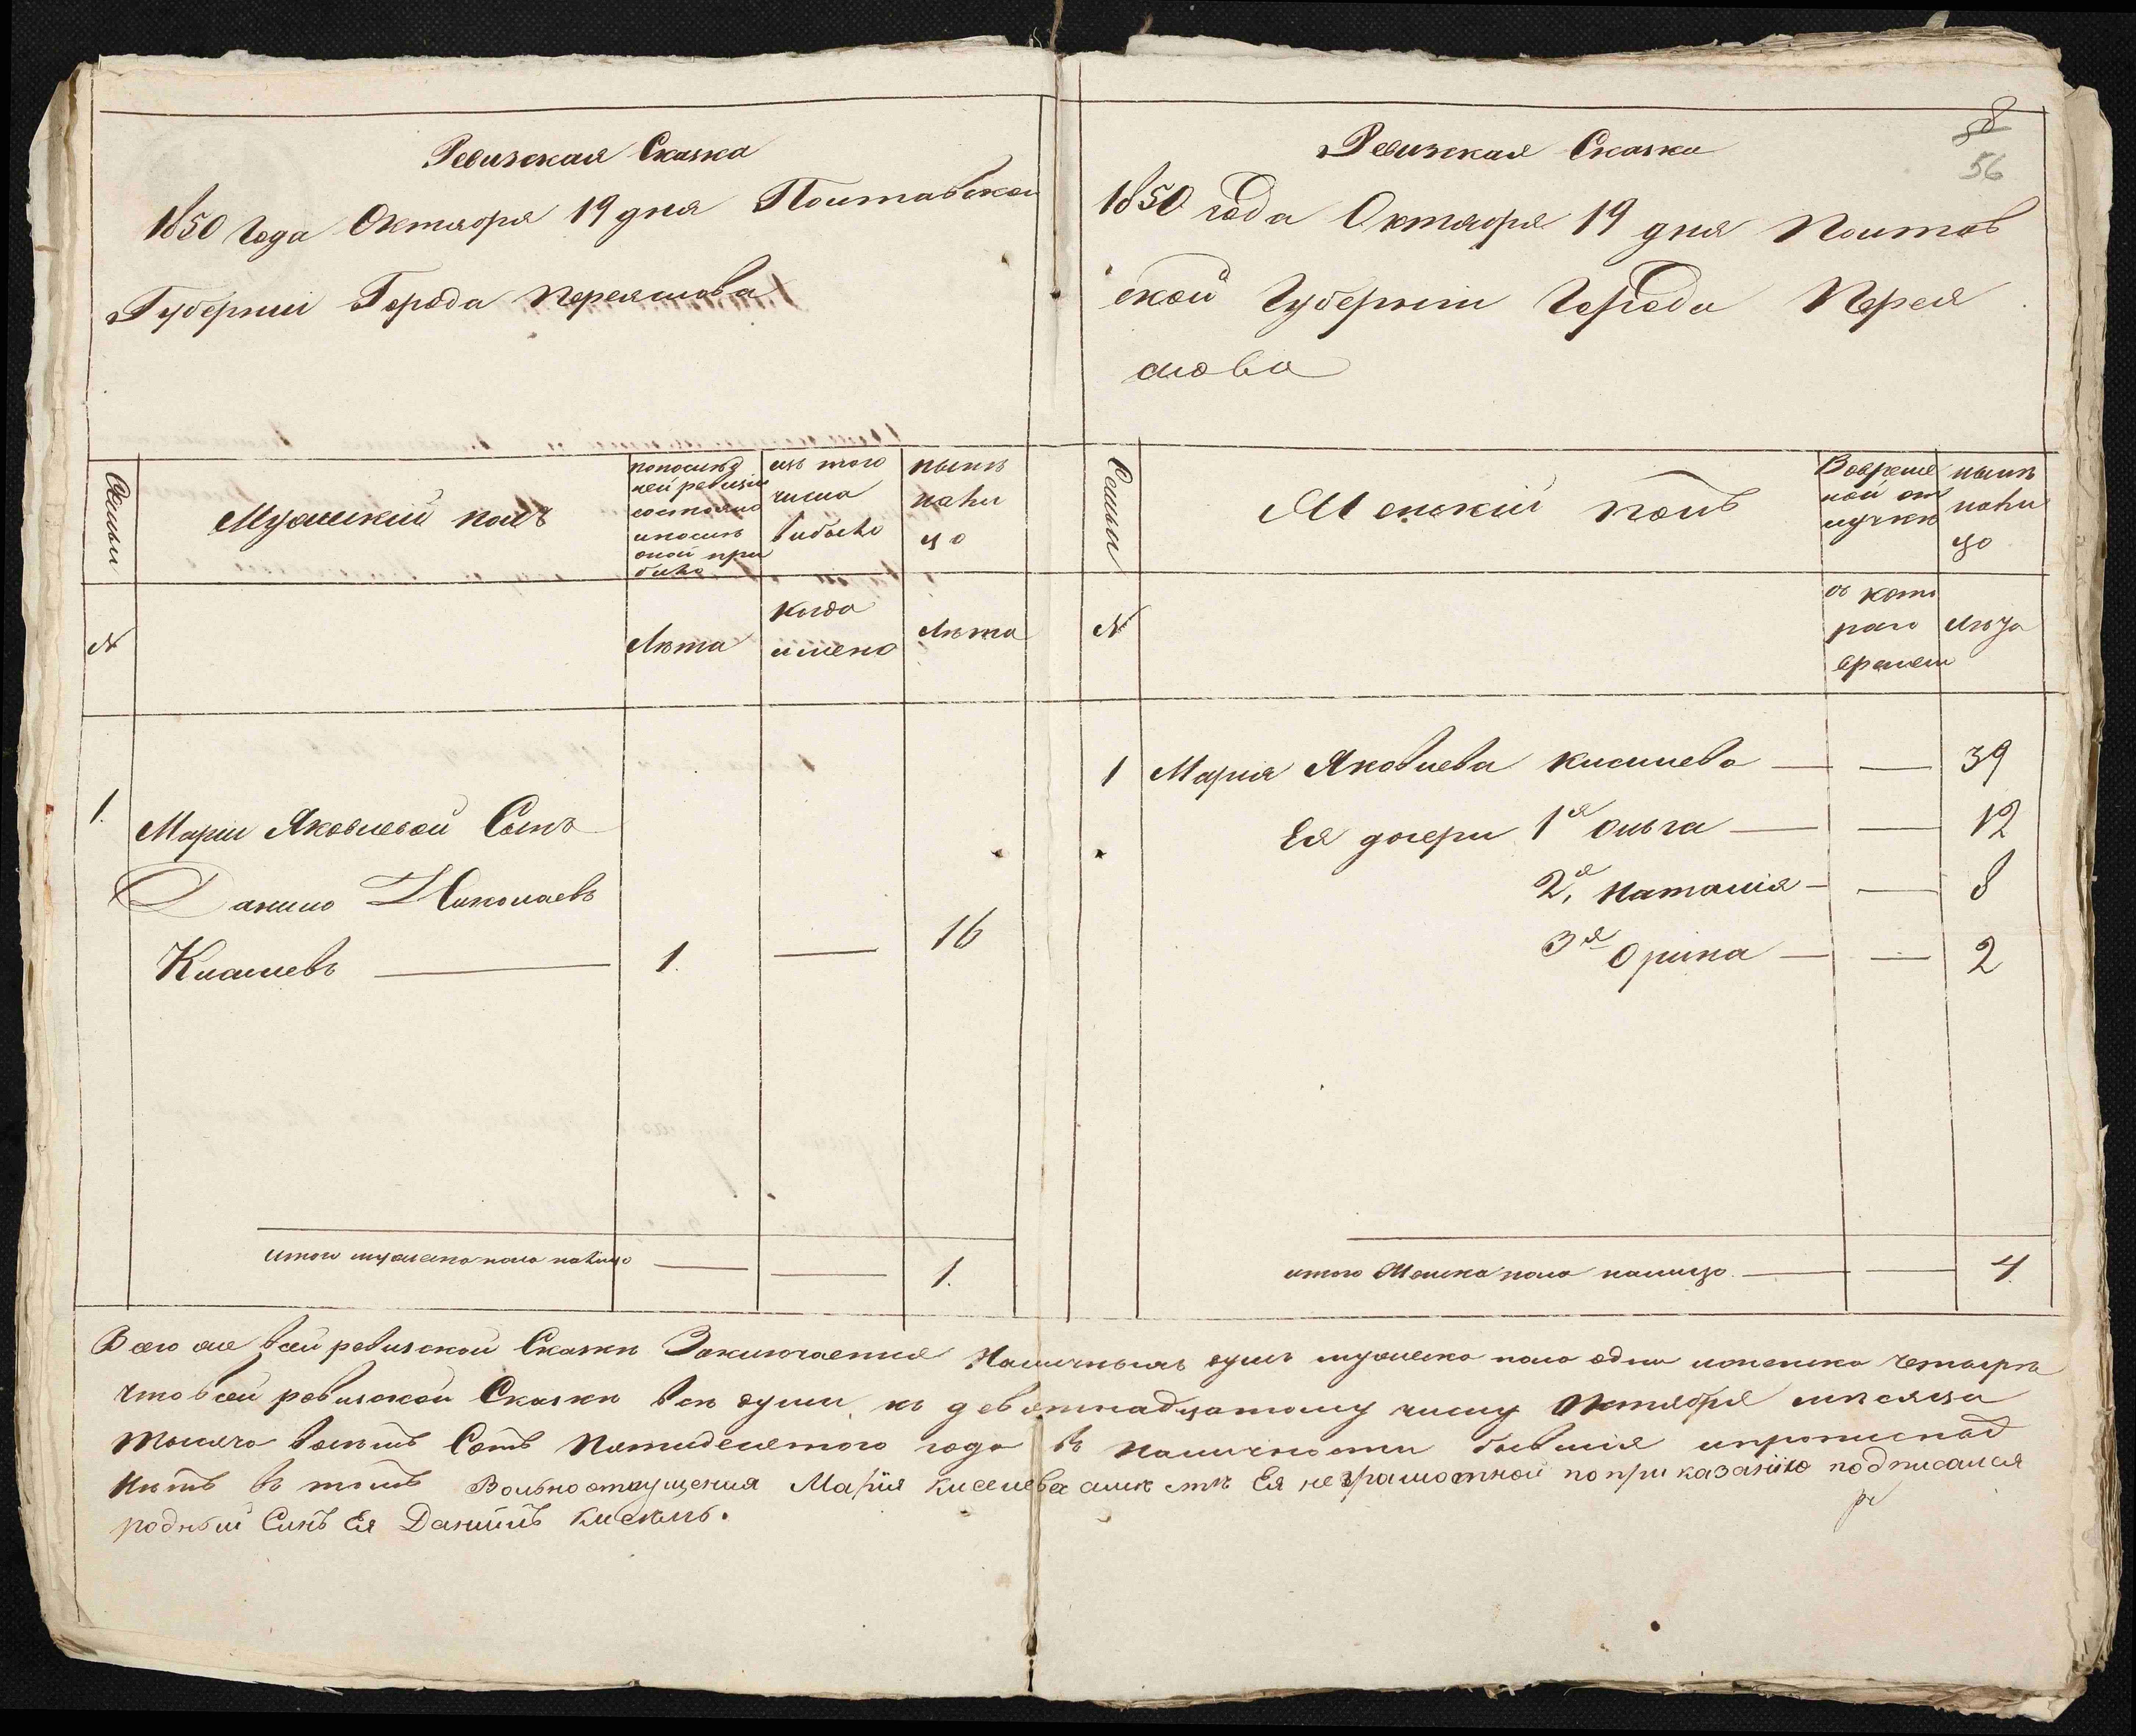 Ревизская Сказка
1850 Года Октября 19 дня Полтавской
Губернии Города Переяслова
Семьи
Мужеский полъ
попослѣд
ней ревизіи
состояло
ипослѣ
оной при
было
изъ того
числа
выбыло
нынѣ
нали
цо
№
Лѣта
когда
имено
Лѣта
1.
Маріи Яковлевой Сынъ
Данило Николаевъ
Киселевъ — 1. — 16
итого мужеска пола налицо — — 1.
Ревизкая Сказка
8
56
1850 года Октября 19 дня Полтав
ской Губерніи Города Перея
слова
Семьи
Женскій полъ
Вовреме
ной от
лучкѣ
нынѣ
нали
цо
№
съ кото
раго
времени
Лѣта
1 Мария Яковлева Киселева — — 39
Ея дочери 1я Ольга — — 12
2я, Наталия — — 8
3я Орина — — 2
итого Женска пола налицо — — 4.
Всего же всей ревизской Сказки Заключается Наличныхъ душъ мужеска пола одна иженска четыре
что всей ревизской Сказки всѣ души къ девятнадцатому числу Октября мѣсяца
тысяча восемь Сотъ Пятидесятого года въ наличности бывшія
нѣтъ въ томъ Вольноотпущения Марія Киселева Ея неграмотной поприказанію подписался
родный Синъ Ея Данійлъ Киселъ.